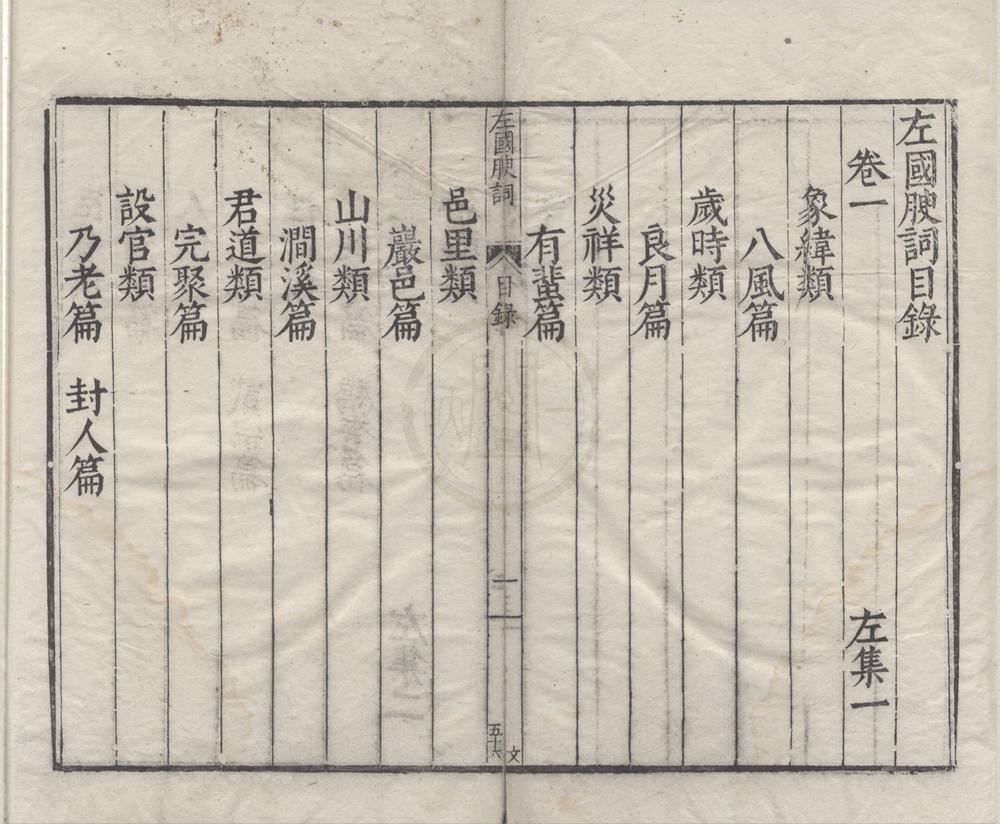 左國腴詞目錄
卷一 左集一
象緯類
八風篇
歲時類
良月篇
災祥類
有蜚篇
左國腴詞 目錄 一 五十六 文
邑里類
巖邑篇
山川類
澗溪篇
君道類
完聚篇
設官類
乃老篇 封人篇